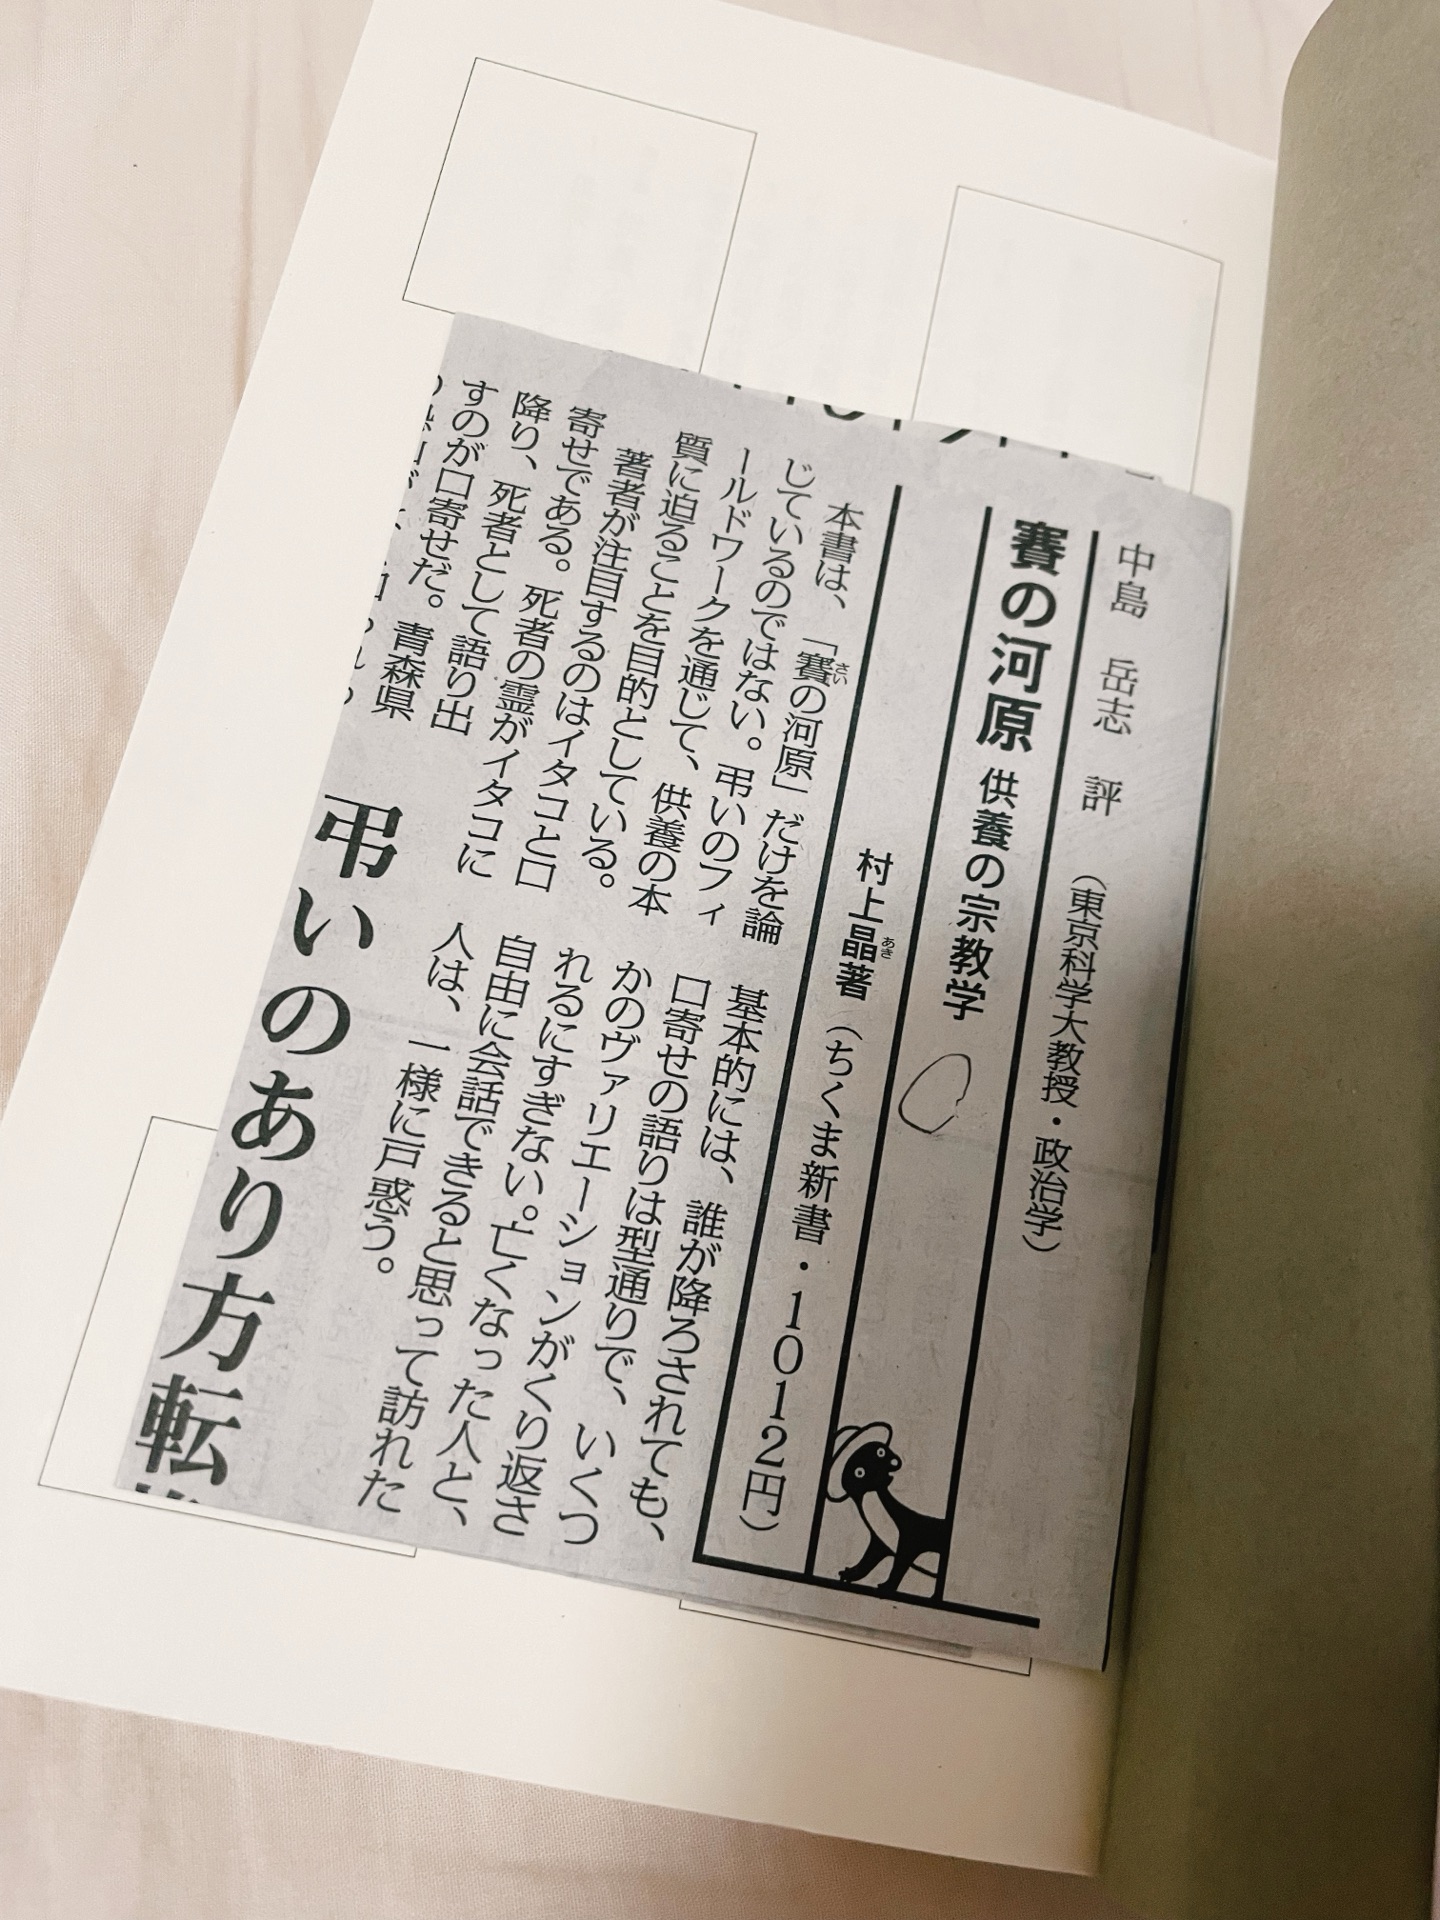 中島 岳志 評 (東京科学大教授・政治学)
賽の河原 供養の宗教学
村上晶著 (ちくま新書・1012円)
あき
本書は、「賽の河原」だけを論
さい
じているのではない。弔いのフィ
ールドワークを通じて、供養の本
質に迫ることを目的としている。
著者が注目するのはイタコと口
寄せである。死者の霊がイタコに
降り、死者として語り出
すのが口寄せだ。青森県
基本的には、誰が降ろされても、
口寄せの語りは型通りで、いくつ
かのヴァリエーションがくり返さ
れるにすぎない。亡くなった人と、
自由に会話できると思って訪れた
人は、一様に戸惑う。
弔いのあり方転